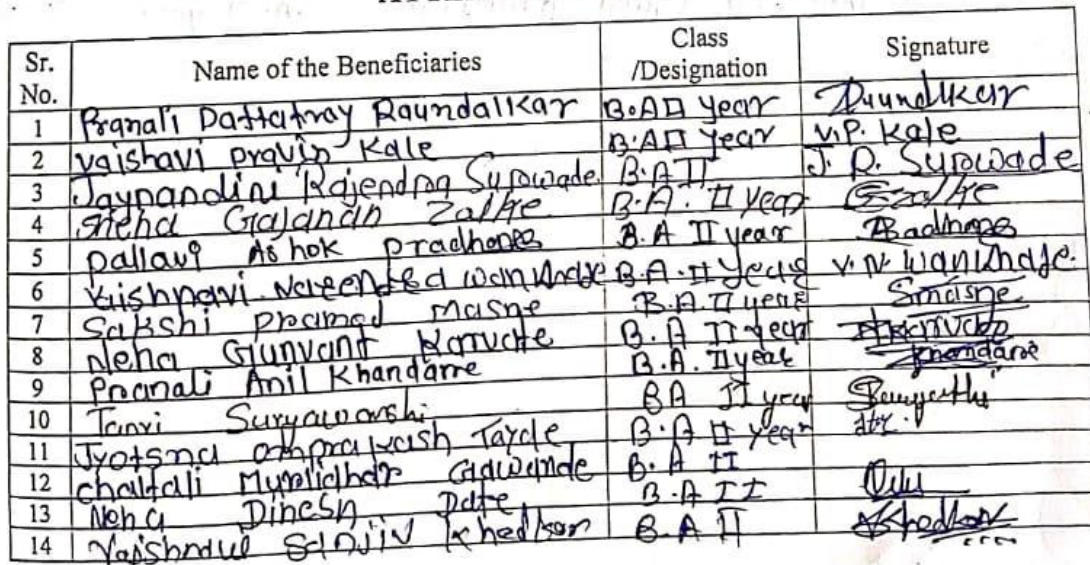 Sr. No. Name of the Beneficiaries Class /Designation Signature
1 Pranali Dattatray Raundalkar B.A II year
2 Vaishavi Pravin Kale B.A II year V.P. Kale
3 Jaynandini Rajendra Surowade. B.A II J. R. Surowade
4 Sneha Gajanan Zalke B.A. II year
5 Pallavi Ashok Pradhane B.A II year
6 Vaishnavi Narendra Wankhade B.A. II year V. N. Wankhade.
7 Sakshi Pramod Masne B.A. II year Smasne
8 Neha Gunvant B.A II year
9 Pranali Anil Khandare B.A. II year Khandare
10 Tanvi Suryawanshi BA II year
11 Jyotsna Omprakash Tayde B.A II year
12 Chaitali Murlidhar Gawande B.A II
13 Neha Dinesh Date B.A II
14 Vaishnavi Sanjiv Khedkar B.A II Khedkar